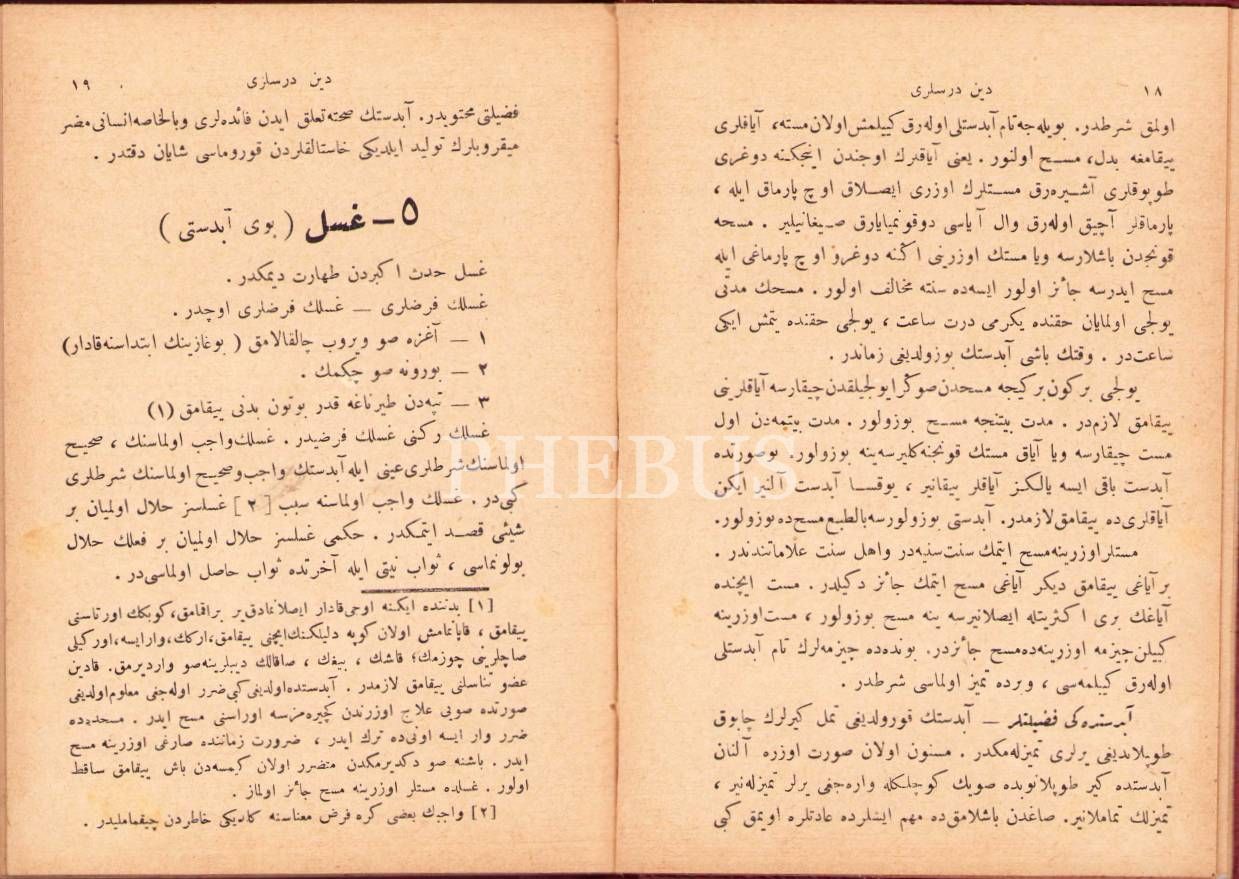 ١٨
دين درسلرى
اولمق شرطدر. بويله‌جه تام آبدستلى اوله‌رق كييلمش اولان مسته، آياقلرى
ييقامغه بدل، مسـح اولنور . يعنى آياقلرك اوجندن اينجكنه دوغرى
طوپوقلرى آشـيره‌رق مسـتلرك اوزرى ايصـلاق اوچ پارماق ايله ،
پارماقلر آچيق اوله‌رق وال آياسى دوقونميايارق صـيغانيلير . مسحه
قونجدن باشلارسه ويا مستك اوزرينى اكنه دوغرو اوچ پارماغى ايله
مسح ايدرسه جائز اولور ايسه‌ده سنته مخالف اولور . مسحك مدتى
يولجى اولمايان حقنده يكرمى درت ساعت ، يولجى حقنده يتمش ايكى
ساعت‌در . وقتك باشى آبدستك بوزولديغى زماندر .
يولجى بركون بركيجه مسحدن صوڭرا يولجيلقدن چيقارسه آياقلرينى
ييقامق لازم‌در . مدت بيتنجه مسـح بوزولور . مدت بيتمه‌دن اول
مست چيقارسه ويا آياق مستك قونجنه كليرسه ينه بوزولور. بوصورتده
آبدست باقى ايسه يالكز آياقلر ييقانير ، يوقسـا آبدست آلنير ايكن
آياقلرى‌ده ييقامق لازمدر. آبدستى بوزولورسه بالطبع مسح‌ده بوزولور.
مستلر اوزرينه مسح ايتمك سنت سنيه‌در واهل سنت علاماتندندر .
بر آياغى ييقامق ديكر آياغى مسح ايتمك جائز دكيلدر . مست ايچنده
آياغك برى اكثريتله ايصلانيرسه ينه مسح بوزولور ، مست اوزرينه
كييلن چيزمه اوزرينه‌ده مسح جائزدر. بونده‌ده چيزمه‌لرك تام آبدستلى
اوله‌رق كييلمه‌سى ، وبرده تميز اولماسى شرطدر .
آبدستده‌كى فضيلتلر — آبدستك قورولديغى تمل كيرلرك چابوق
طوپلانديغى يرلرى تميزله‌مكدر . مسنون اولان صورت اوزره آلنان
آبدستده كير طوپلانوبده صويك كوچلكله واره‌جغى يرلر تميزله‌نير ،
تميزلك تماملانير. صاغدن باشلامق‌ده مهم ايشلرده عادتلره اويمق كبى
١٩
دين درسلرى
فضيلتى محتويدر. آبدستك صحته تعلق ايدن فائده‌لرى وبالخاصه انسانى مضر
ميقروبلرك توليد ايلديكى خاستالقلردن قوروماسى شايان دقتدر .
٥ — غسل ( بوى آبدستى )
غسل حدث اكبردن طهارت ديمكدر.
غسلك فرضلرى — غسلك فرضلرى اوچدر .
١ — آغزه صو ويروب چالقالامق ( بوغازينك ابتداسنه‌قادار)
٢ — بورونه صو چكمك .
٣ — تپه‌دن طيرناغه قدر بوتون بدنى ييقامق (١)
غسلك ركنى غسلك فرضيدر. غسلك واجب اولماسنك ، صحيـح
اولماسنك شرطلرى عينى ايله آبدستك واجب وصحيـح اولماسنك شرطلرى
كبى‌در . غسلك واجب اولماسنه سبب [٢] غسلسز حلال اولميان بر
شيئى قصـد ايتمكدر . حكمى غسلسز حلال اولميان بر فعلك حلال
بولونماسى ، ثواب نيتى ايله آخرتده ثواب حاصل اولماسى‌در .
[١] بدننده ايكنه اوجى‌قادار ايصلانمادق‌ير براقمامق، كوبكك اورتاسنى
ييقامق ، قاپانمامش اولان كوپه دليلكنك ايچنى ييقامق، اركك، وارايسه، اوركيلى
صاچلرينى چوزمك؛ قاشك ، بيغك ، صاقالك ديبلرينه صو وارديرمق. قادين
عضو تناسلنى ييقامق لازمدر . آبدستده اولديغى كبى ضرر اوله‌جغى معلوم اولديغى
صورتده صويى علاج اوزرندن كچيره‌مزسه اوراسنى مسح ايدر . مسحده‌ده
ضرر وار ايسه اونى‌ده ترك ايدر ، ضرورت زماننده صارغى اوزرينه مسح
ايدر . باشنه صو دكديرمكدن متضرر اولان كيمسه‌دن باش ييقامق ساقط
اولور . غسلده مستلر اوزرينه مسح جائز اولماز .
[٢] واجبك بعضى كره فرض معناسنه كلديكى خاطردن چيقمامليدر .
PHEBUS